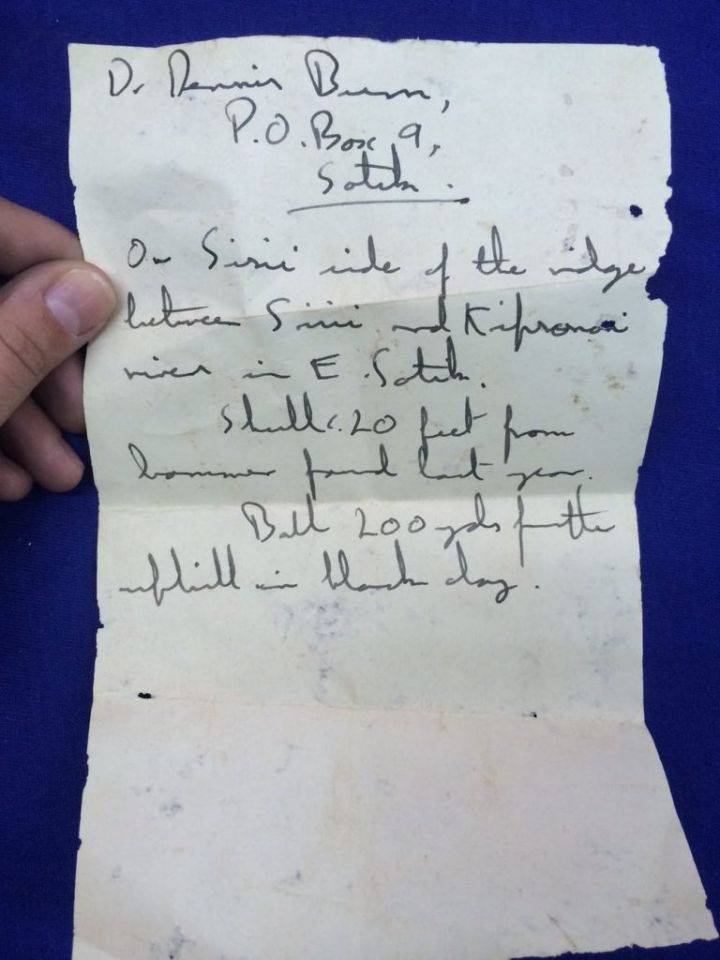 Dr Dennis Burn,
P.O. Box 9,
Sotik.
On Sisii side of the ridge
between Sisii and Kipsonoi
river in E. Sotik.
Skull c. 20 feet from
hammer found last year.
Ball 200 yds further
uphill in black clay.